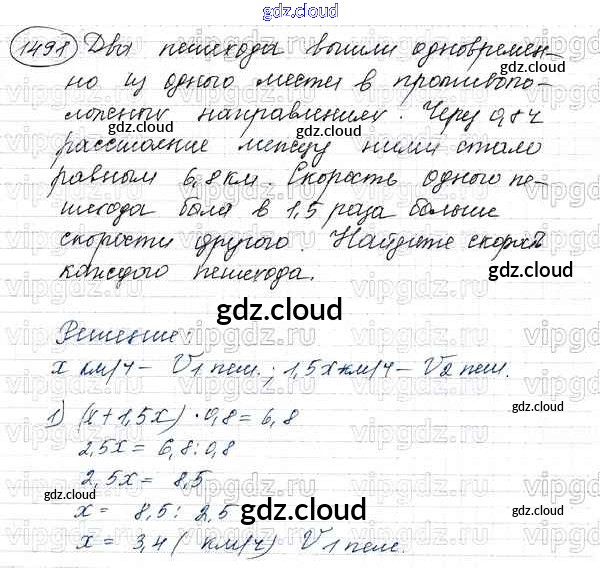 gdz.cloud
1498 Два пешехода вышли одновремен-
но из одного места в противопо-
ложных направлениях. Через 0,8 ч
расстояние между ними стало
равным 6,8 км. Скорость одного пе-
шехода была в 1,5 раза больше
скорости другого. Найдите скорость
каждого пешехода.
gdz.cloud
Решение:
x км/ч – V1 пеш.; 1,5x км/ч – V2 пеш.
1) (x + 1,5x) · 0,8 = 6,8
2,5x = 6,8 : 0,8
2,5x = 8,5
x = 8,5 : 2,5
x = 3,4 (км/ч) V1 пеш.
gdz.cloud